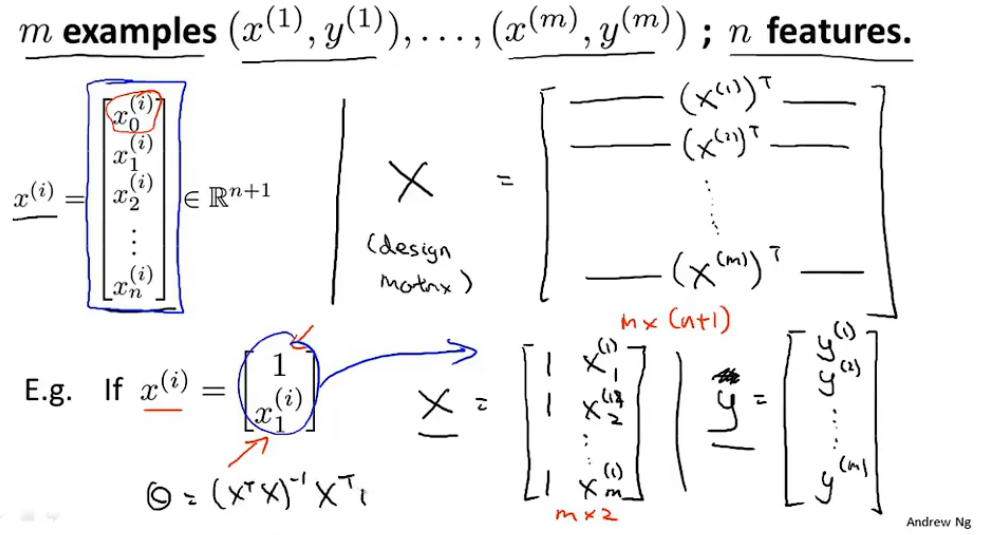 m examples (x^(1), y^(1)), ..., (x^(m), y^(m)) ; n features.
x^(i) = [x_0^(i) x_1^(i) x_2^(i) ⋮ x_n^(i)] ∈ ℝ^{n+1}
X = [— (x^(1))^T — — (x^(2))^T — ⋮ — (x^(m))^T —]
(design
matrix)
m x (n+1)
E.g. If x^(i) = [1 x_1^(i)]
X = [1 x_1^(1) 1 x_2^(1) ⋮ 1 x_m^(1)]
m x 2
y = [y^(1) y^(2) ⋮ y^(m)]
Θ = (X^T X)^{-1} X^T
Andrew Ng